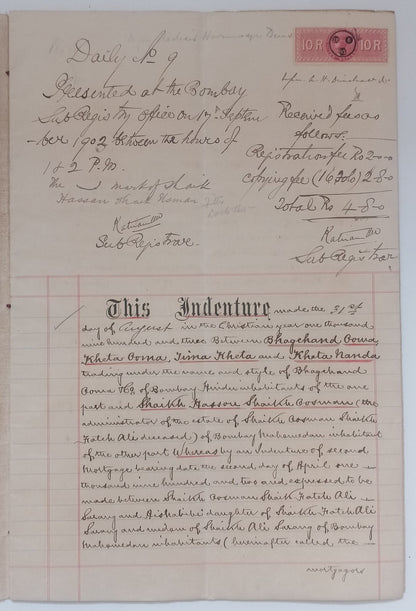 10 R 10 R
Daily No 9
Presented at the Bombay
Sub Registry Office on 17th Septem
-ber 1902 between the hours of
1 & 2 P.M.
The mark of Shaik
Hassan Shaik Hosman
Sub Registrar.
Received fees as
follows.
Registration fee Rs 2-0-0
Copying fee (16 folio) 2-8-0
Total Rs 4-8-0
Sub Registrar
This Indenture made the 31st
day of August in the Christian year one thousand
nine hundred and three Between Bhagchand Ooma,
Kheta Ooma, Jima Kheta and Kheta Nanda
trading under the name and style of Bhagchand
Ooma & Co, of Bombay Hindu inhabitants of the one
part and Shaikh Hassan Shaikh Oosman (the
administrator of the estate of Shaikh Oosman Shaikh
Fateh Ali deceased) of Bombay Mahomedan inhabitant
of the other part Whereas by an Indenture of second
Mortgage bearing date the second day of April one
thousand nine hundred and two and expressed to be
made between Shaikh Oosman Shaik Fateh Ali
Sarang and Aishabi daughter of Shaikh Fateh Ali
Sarang and widow of Shaikh Ali Sarang of Bombay
Mahomedan inhabitants (hereinafter called the
mortgagors